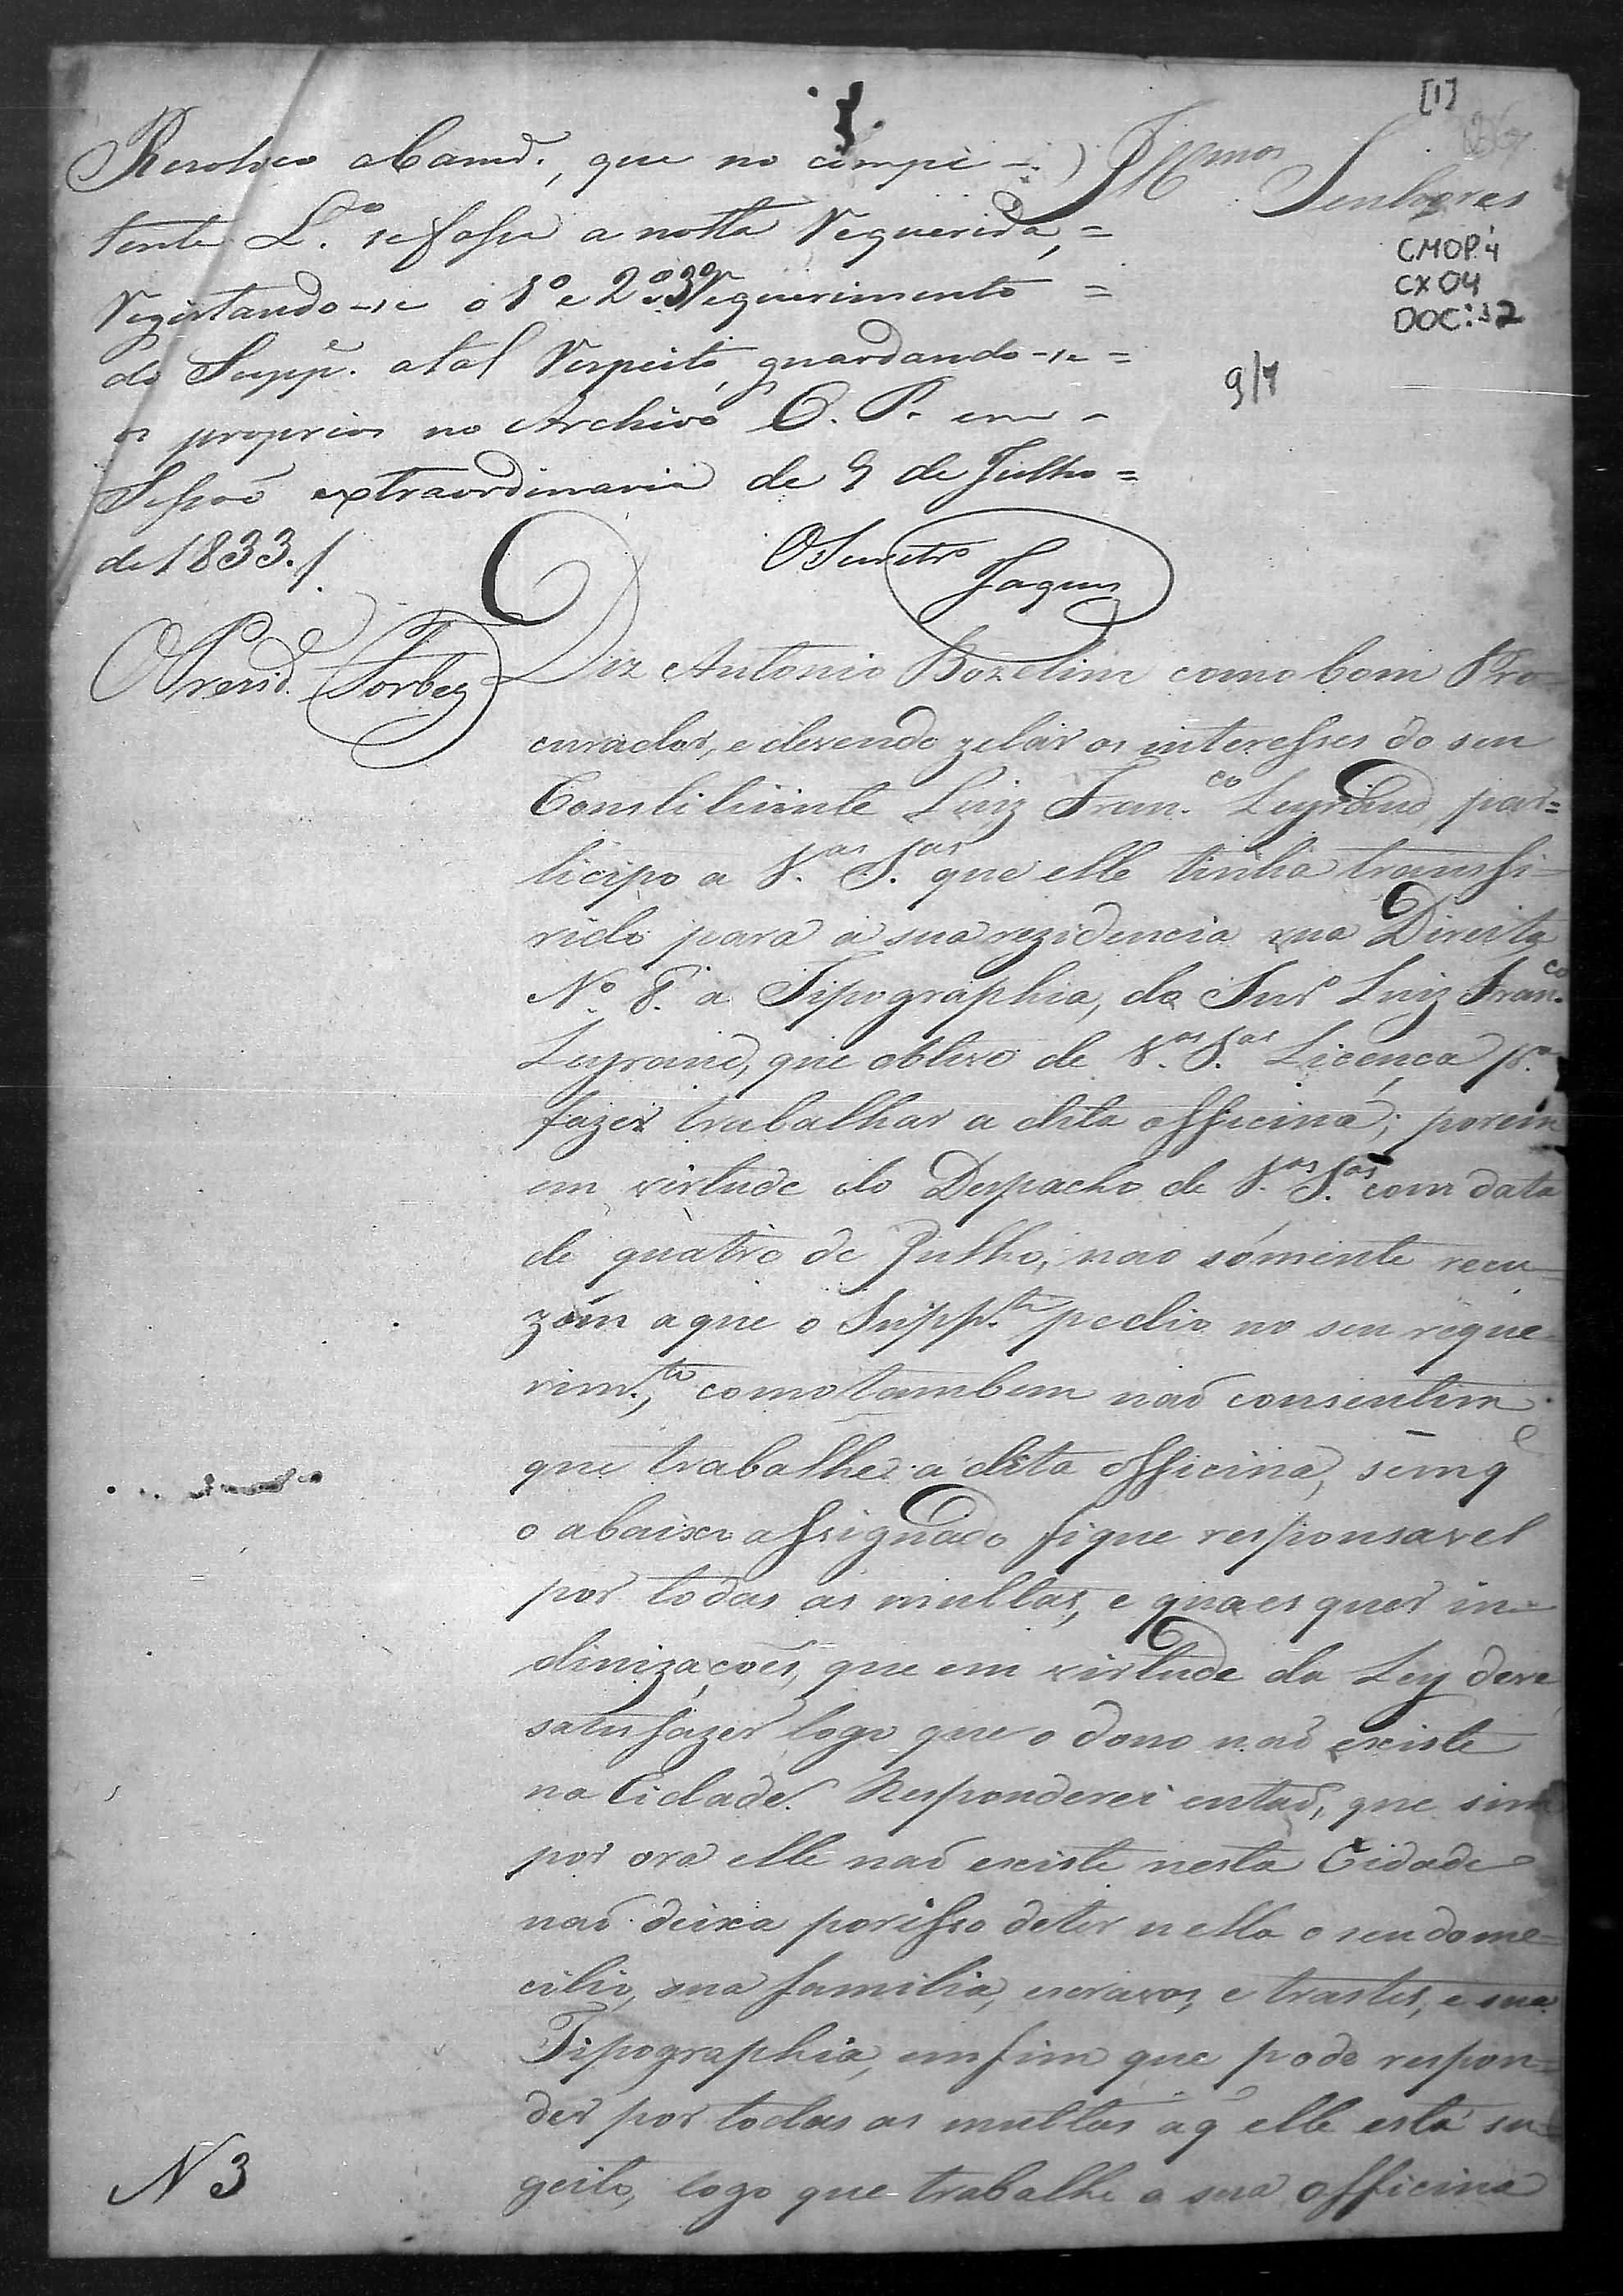 [1]
Resolveo a Camrª., que no compe-
tente L.º se fassa a notta requerida, =
registando-se o 1º e 2º e 3º requerimento =
do Suppe. a tal respeito, guardando-se =
os proprios no Archivo C. P. em -
Sessaõ extraordinaria de 9 de Julho =
de 1833./.
O Secretrº Jaques
O Presid.e Torbes
Illmos Senhores
CMOP.
CX 04
DOC: 32
9/7
Diz Antonio Bozelim como bom Pro-
curador, e devendo zelar os interesses do seu
Constituiinte Luiz Fran.co Legrand, par=
ticipo a V.as S.as que elle tinha transfi-
rido para a sua rezidencia rua Direita
Nº 8. a Tipographia, do Snrº Luiz Fran.co
Legrand, que obteve de V.as S.as Licença p.ª
fazer trabalhar a dita officina; porem
em virtude do Despacho de V.as S.as com data
de quatro de Julho, nao sómente recu-
zám a que o Supp.te pedio no seu reque-
rim.to, como tambem naõ consentim
que trabalhe a dita officina, sem q
o abaixo assignado fique responsavel
por todas as multas, e quaes quer in-
dinizaçoẽs, que em virtude da Ley deve
satisfazer logo que o dono naõ existe
na Cidade. Responderei entaõ, que sim
por ora elle naõ existe nesta Cidade
naõ deixa por isso de ter nella o seu dome=
cilio, sua familia, escravos, e trastes, e sua
Tipographia, em fim que pode respon=
der por todas as multas a q elle está su=
geito, logo que trabalhe a sua officina
N 3